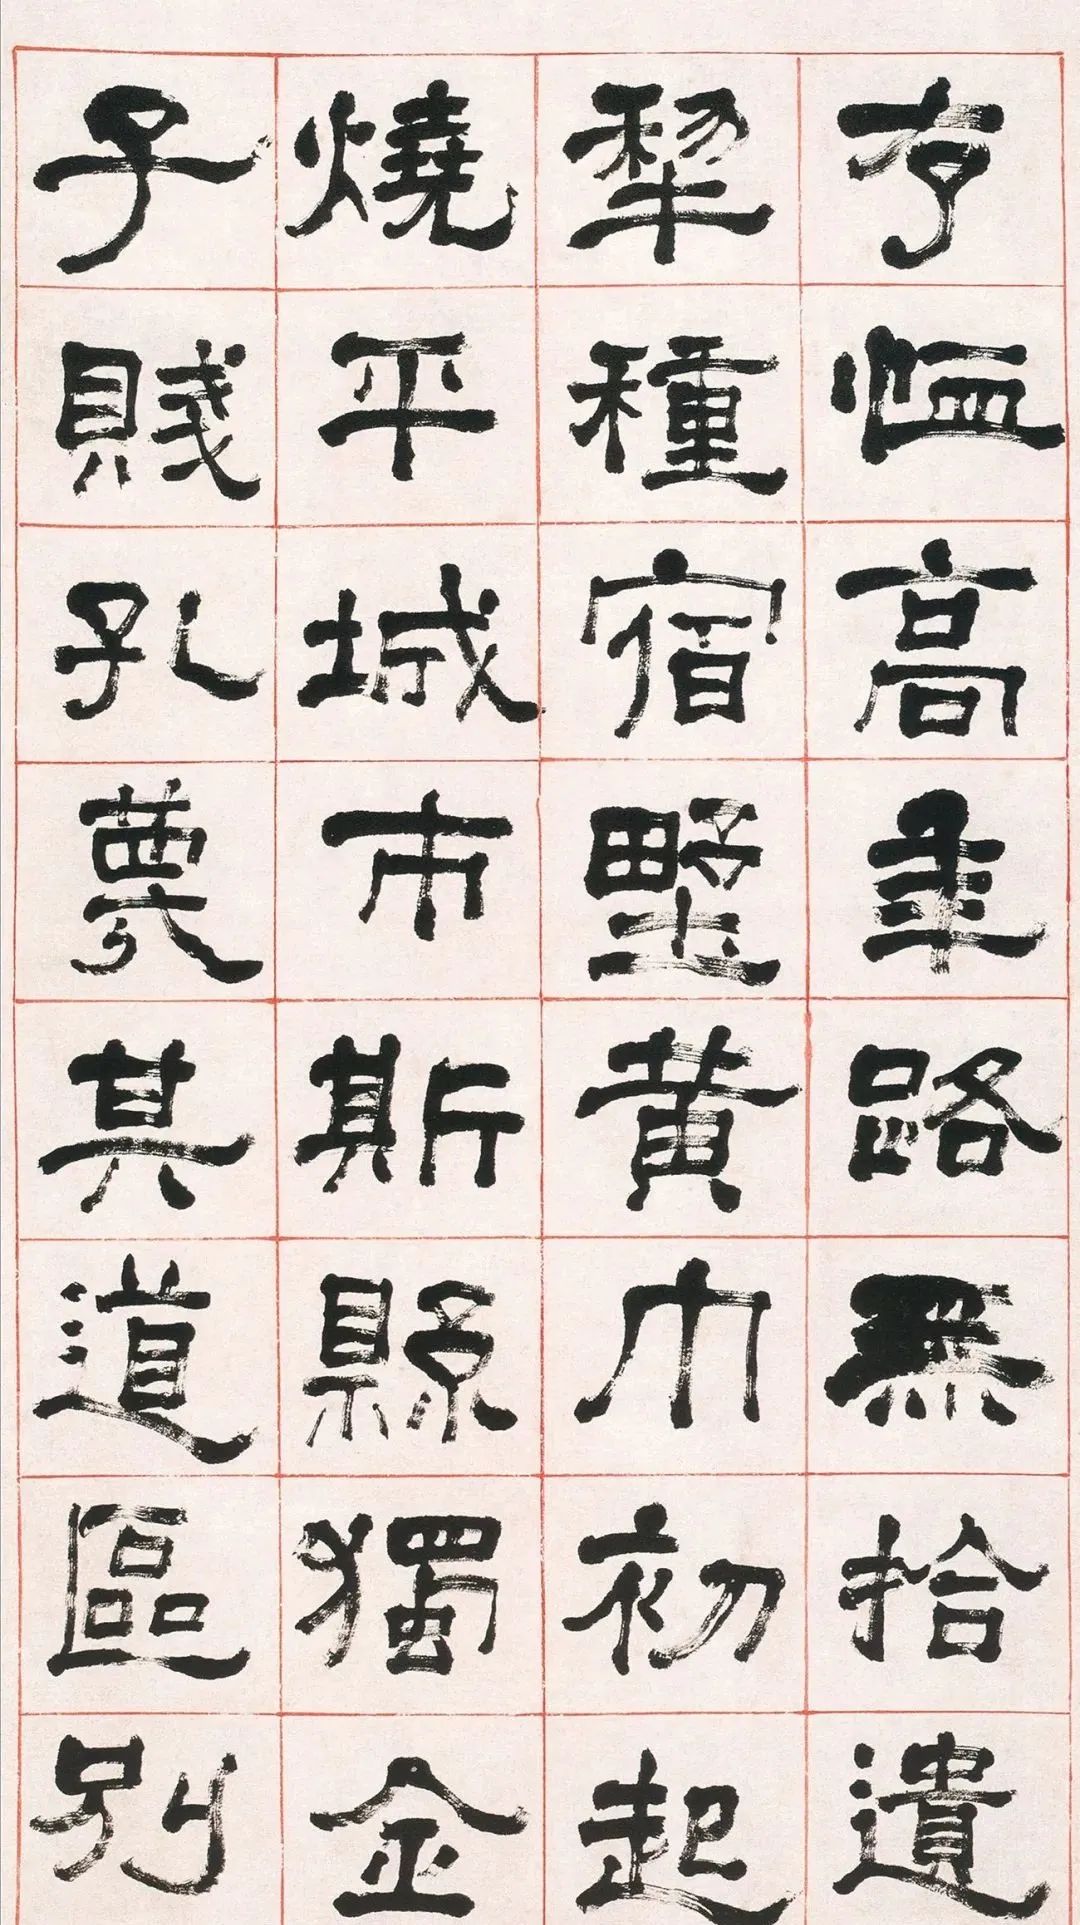 存恤高年路無拾遺
犁種宿野黃巾初起
燒平城市斯縣獨全
子賤孔蔑其道區別